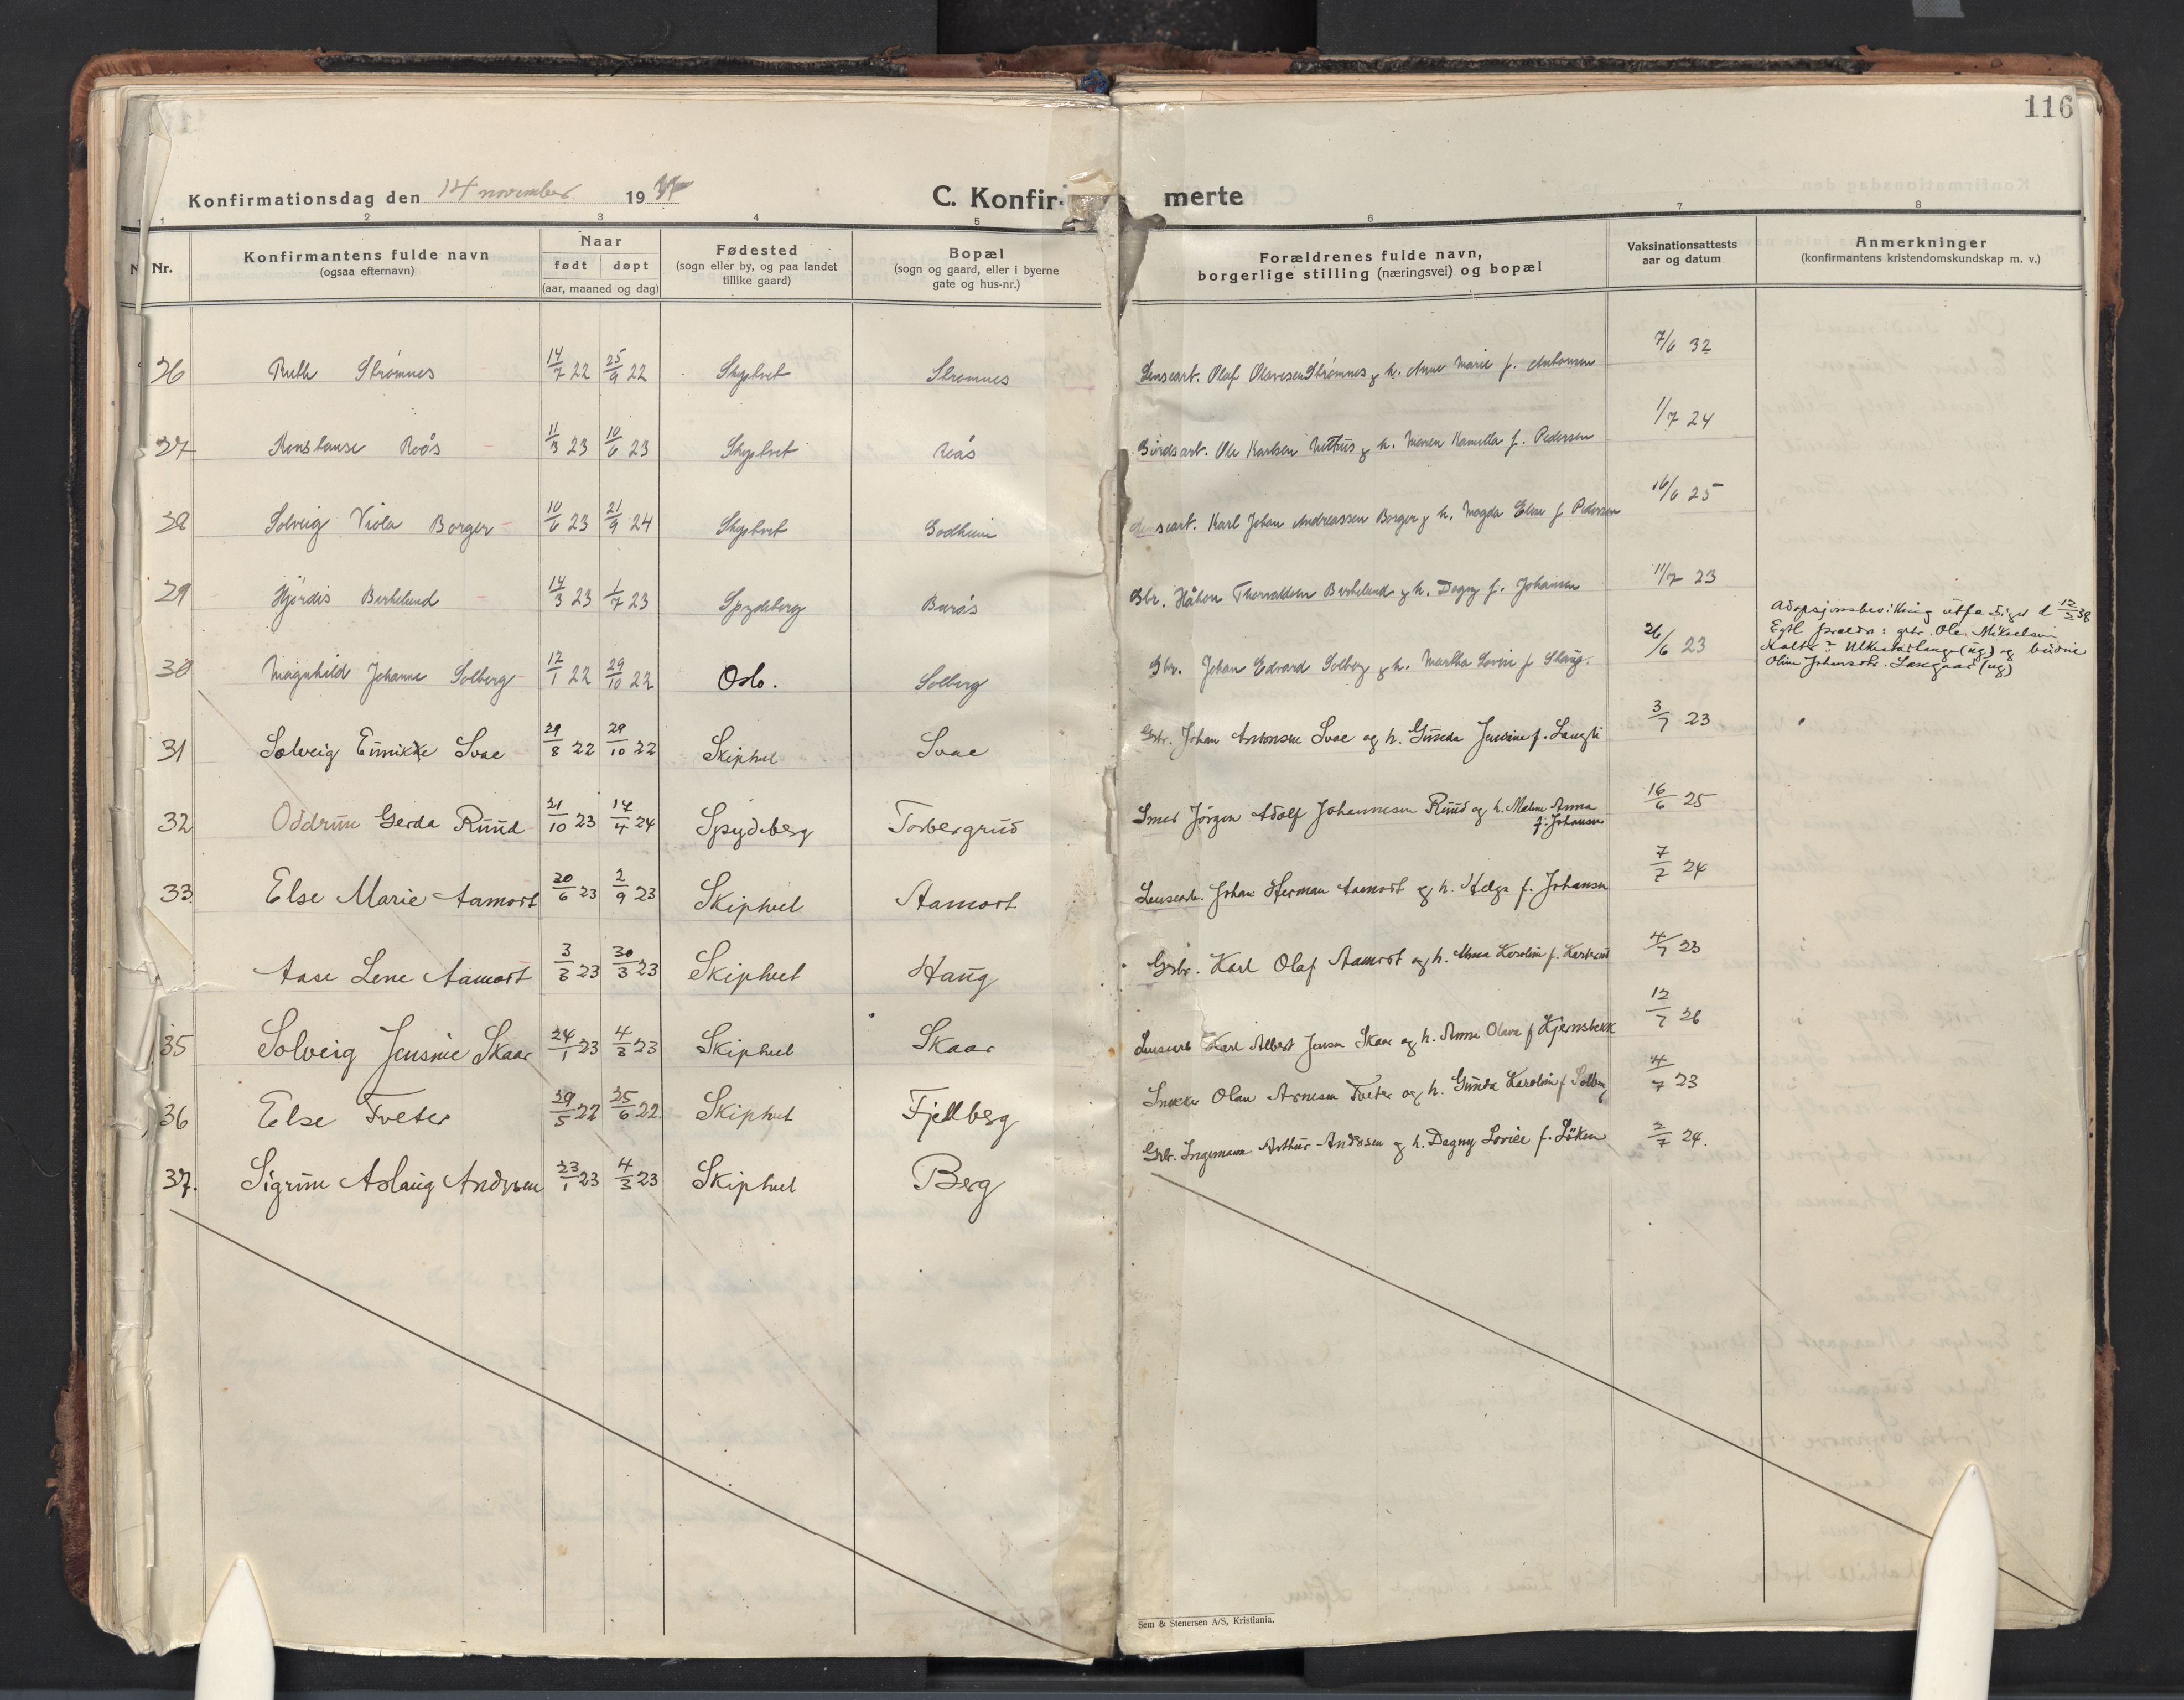 116
Konfirmationsdag den 14 november 19 37
C. Konfir- merte
1 2 3 4 5 6 7 8
Nr.
Konfirmantens fulde navn
(ogsaa efternavn)
Naar
født døpt
(aar, maaned og dag)
Fødested
(sogn eller by, og paa landet
tillike gaard)
Bopæl
(sogn og gaard, eller i byerne
gate og hus-nr.)
Forældrenes fulde navn,
borgerlige stilling (næringsvei) og bopæl
Vaksinationsattests
aar og datum
Anmerkninger
(konfirmantens kristendomskundskap m. v.)
26 Ruth Strømnes 14/7 22 25/9 22 Skiptvet Strømnes Lensearb. Olaf Olavesen Strømnes og h. Anne Marie f. Antonsen 7/6 32
27 Konstanse Roås 11/3 23 10/6 23 Skiptvet Roås Ole Karlsen og h. Maren Kamilla f. Pedersen 1/7 24
28 Solveig Viola Borger 10/6 23 21/9 24 Skiptvet Godheim Lensearb. Karl Johan Andreassen Borger og h. Magda Elise f. Pedersen 16/6 25
29 Hjørdis Birkelund 14/3 23 1/7 23 Spydeberg Buraas Gbr. Håkon Thorvaldsen Birkelund og h. Dagny f. Johansen 11/7 23
30 Magnhild Johanne Solberg 12/1 22 29/10 22 Oslo. Solberg Gbr. Johan Edvard Solberg og h. Martha Lovise f. Skaug. 26/6 23
Adopsjonsbevilling utferdiget d 12/2 38
Egtl foreldr: gbr. Ole Mikaelsen
(ug) og budeie
Oline (ug)
31 Solveig Eunikke Svae 29/8 22 29/10 22 Skiptvet Svae Grbr. Johan Antonsen Svae og h. Gunda Jensine f. Langli 3/7 23
32 Oddrun Gerda Ruud 21/10 23 14/4 24 Spydeberg Torbergrud Smed Jørgen Adolf Johannesen Ruud og h. Anna
f. Johansen 16/6 25
33 Else Marie Aamodt 20/6 23 2/9 23 Skiptvet Aamodt Lensearb. Johan Herman Aamodt og h. Helga f. Johansen 7/7 24
Aase Lene Aamodt 3/3 23 30/3 23 Skiptvet Haug Grbr. Karl Olaf Aamodt og h. Anna Karoline f. 4/7 23
35 Solveig Jensine Skaar 24/1 23 4/3 23 Skiptvet Skaar Lensearb Karl Albert Jensen Skaar og h. Anna Olava f Kjernsbekk 12/7 26
36 Else Tveter 29/5 22 25/6 22 Skiptvet Fjellberg Snekker Olav Arnesen Tveter og h. Gunda Karoline f Solberg 4/7 23
37. Sigrun Aslaug Andersen 23/1 23 4/3 23 Skiptvet Berg Grbr. Ingemann Arthur Andersen og h. Dagny Lovise f. Løken 2/7 24.
Sem & Stenersen A/S, Kristiania.